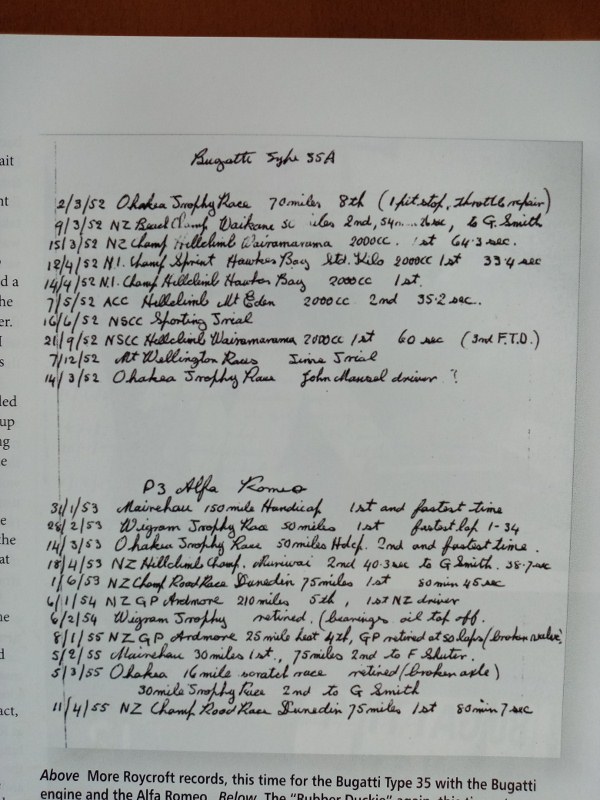 Bugatti Type 35A
2/3/52 Ohakea Trophy Race 70 miles 8th (1 pit stop, throttle repair)
9/3/52 NZ Beach Champ Waikane 2nd, to G. Smith
15/3/52 NZ Champ Hillclimb Wairamarama 2000cc. 1st 64.3 sec.
12/4/52 N.I. Champ Sprint Hawkes Bay Std. Kilo 2000cc 1st 33.4 sec
14/4/52 N.I. Champ Hillclimb Hawkes Bay 2000cc 1st.
7/5/52 ACC Hillclimb Mt Eden 2000cc 2nd 35.2 sec..
16/6/52 NSCC Sporting Trial
21/9/52 NSCC Hillclimb Wairamarama 2000cc 1st 60 sec (3rd F.T.D.)
7/12/52 Mt Wellington Races Time Trial
14/3/52 Ohakea Trophy Race John Mansel driver ?
P3 Alfa Romeo
31/1/53 Mairehau 150 mile Handicap 1st and fastest time
28/2/53 Wigram Trophy Race 50 miles 1st fastest lap 1-34
14/3/53 Ohakea Trophy Race 50 miles Hdcp. 2nd and fastest time.
18/4/53 NZ Hillclimb Champ. Muriwai 2nd 40.3 sec to G Smith. 38.7 sec
1/6/53 NZ Champ Road Race Dunedin 75 miles 1st 80 min 45 sec
6/1/54 NZ GP Ardmore 210 miles 5th, 1st NZ driver
6/2/54 Wigram Trophy retired. (bearings oil top off.
8/1/55 NZ GP Ardmore 25 mile heat 4th, GP retired at 50 laps (broken valve)
5/2/55 Mairehau 30 miles 1st., 75 miles 2nd to F Shuter.
5/3/55 Ohakea 16 mile scratch race retired (broken axle)
30 mile Trophy Race 2nd to G Smith
11/4/55 NZ Champ Road Race Dunedin 75 miles 1st 80 min 7 sec
Above More Roycroft records, this time for the Bugatti Type 35 with the Bugatti
engine and the Alfa Romeo. Below The "Rubber Duckie" again, this time